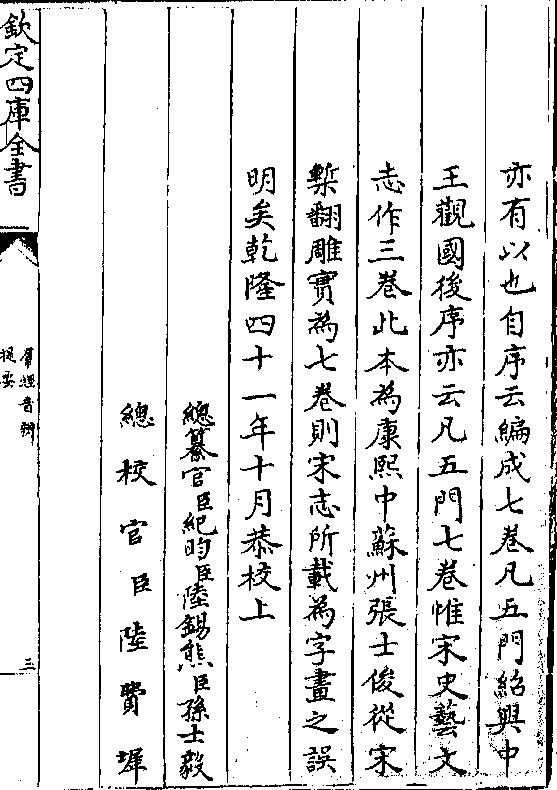 亦有以也自序云編成七卷凡五門紹興中
王觀國後序亦云凡五門七卷惟宋史藝文
志作三卷此本為康熙中蘇州張士俊從宋
槧翻雕實為七卷則宋志所載為字畫之誤
明矣乾隆四十一年十月恭校上
總纂官臣紀昀臣陸錫熊臣孫士毅
總校官臣陸費墀
欽定四庫全書
羣經音辨
提要
三